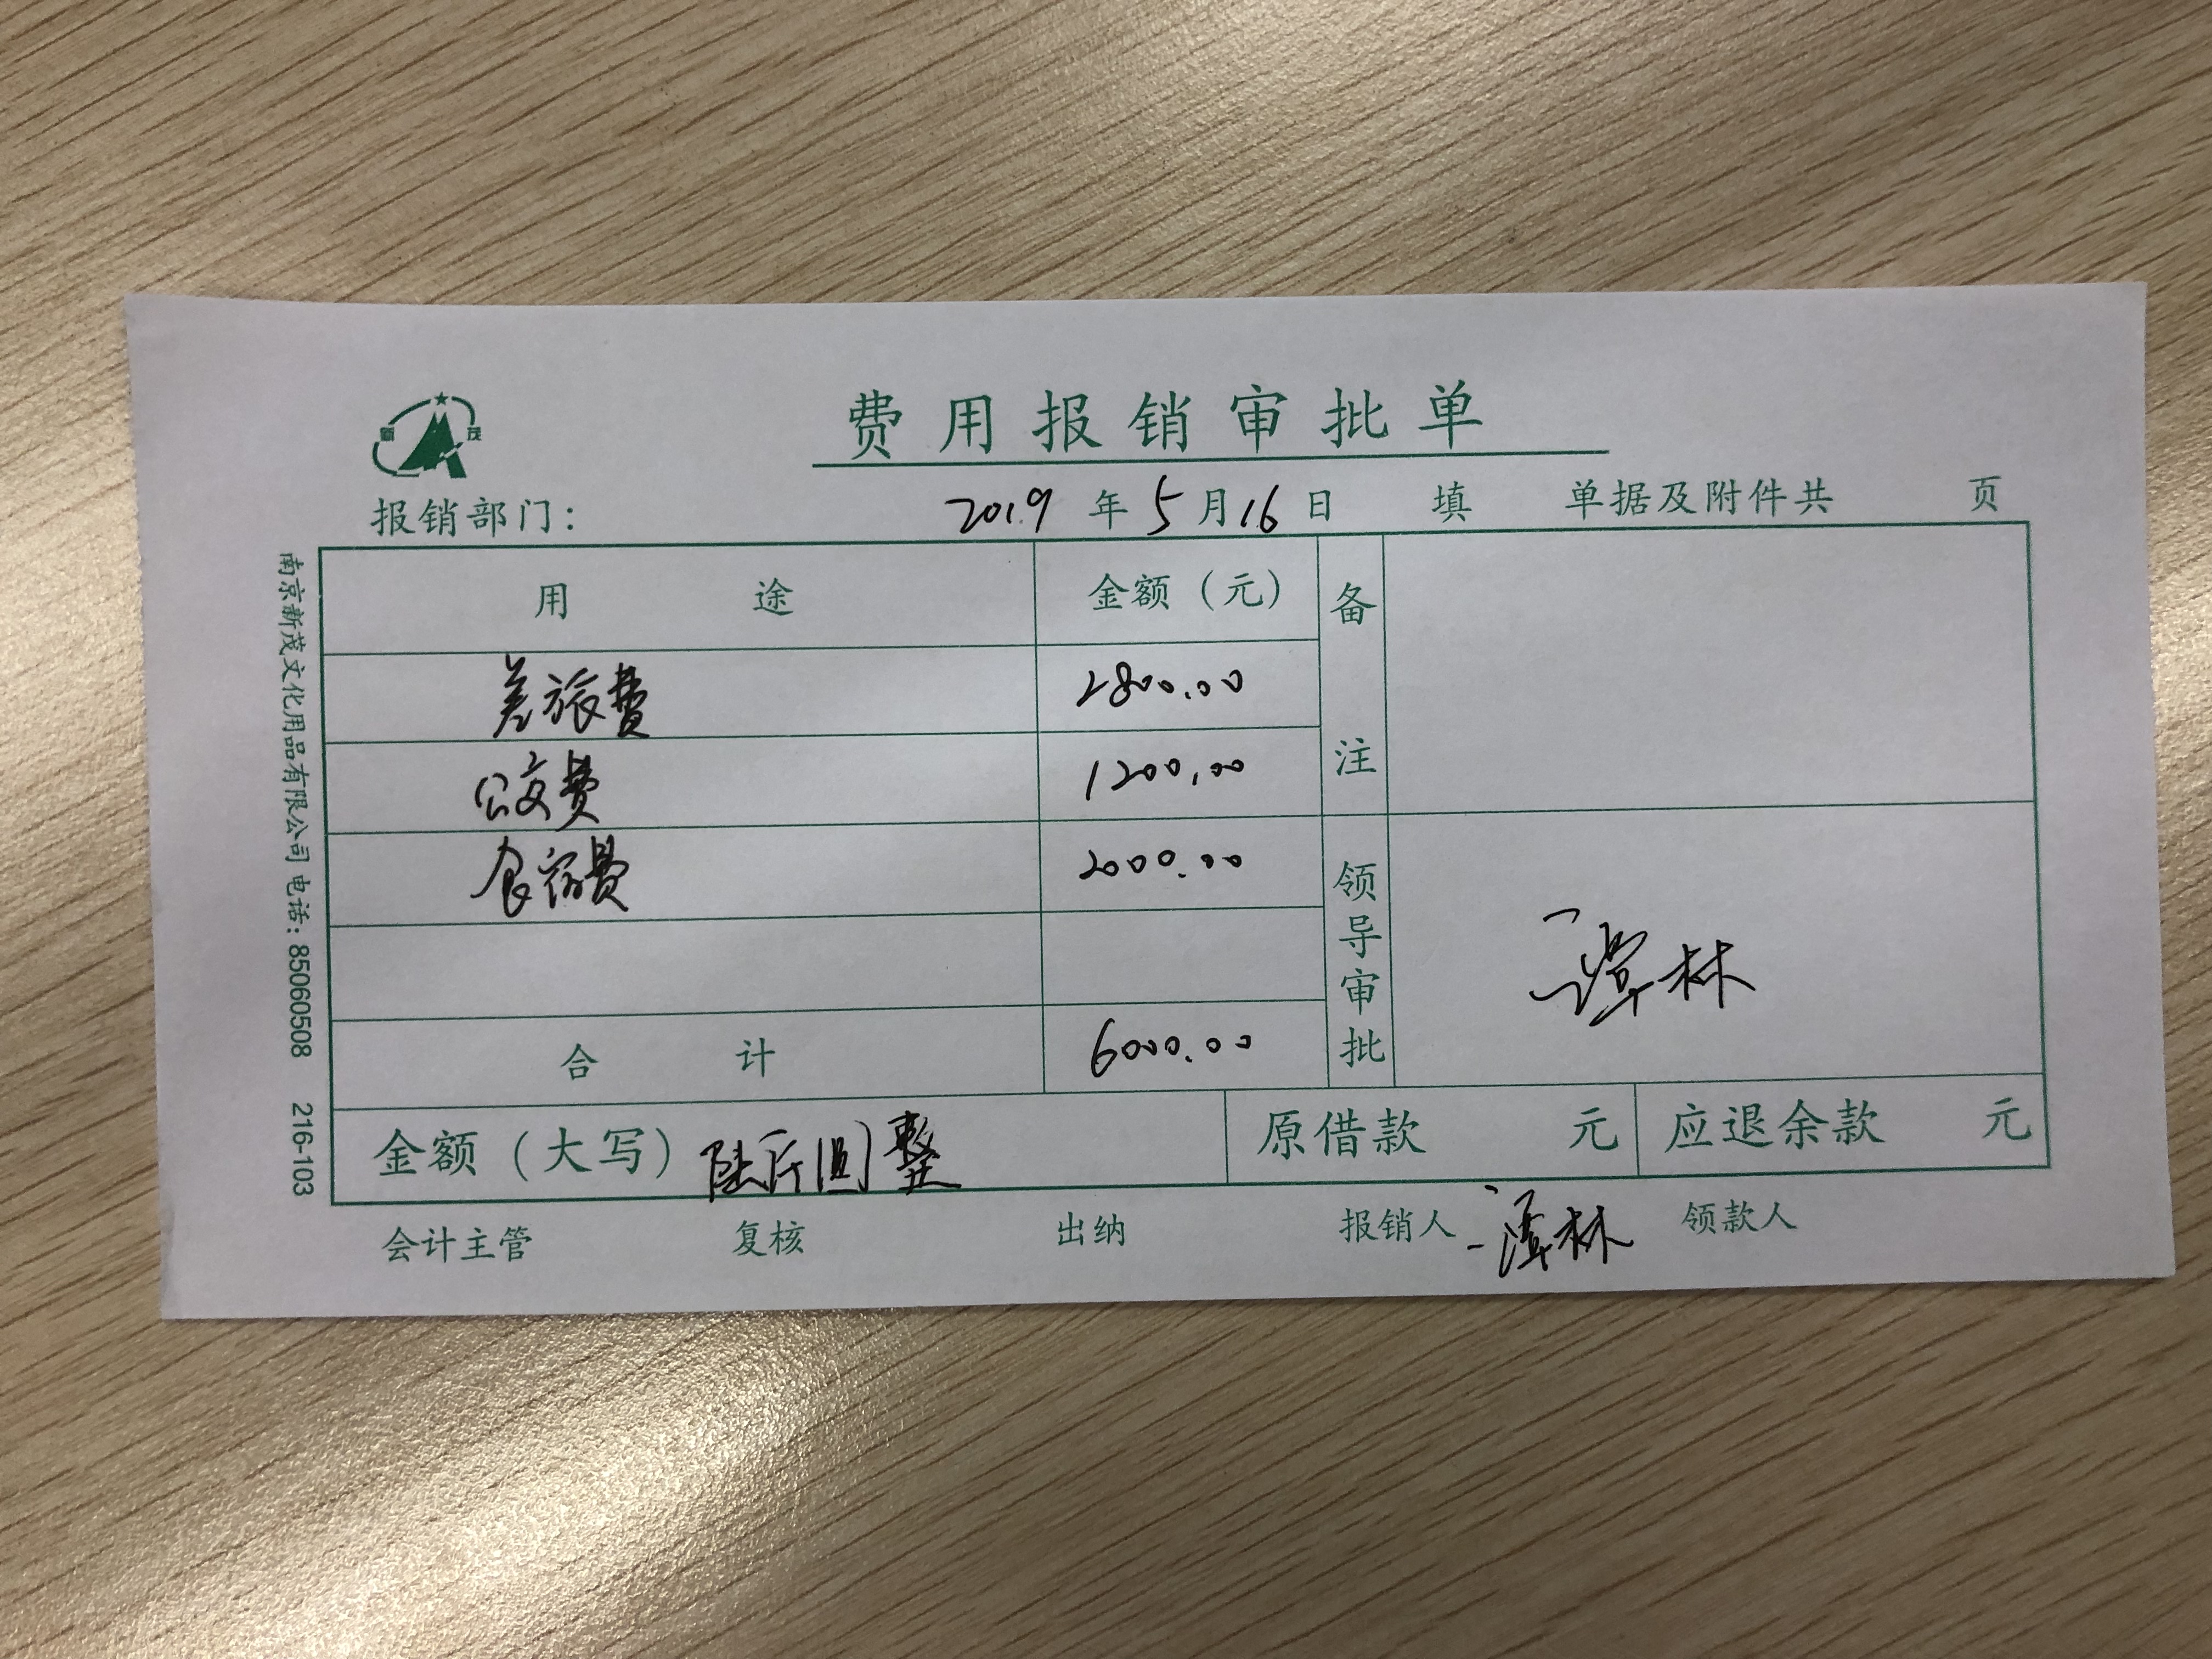 费用报销审批单
报销部门： 2019年5月16日 填 单据及附件共 页
用途 金额（元） 备注
差旅费 2800.00
会议费 1200.00
住宿费 2000.00
领导审批
合计 6000.00
金额（大写）陆仟圆整 原借款 元 应退余款 元
会计主管 复核 出纳 报销人 领款人
南京新茂文化用品有限公司 电话：85060508 216-103